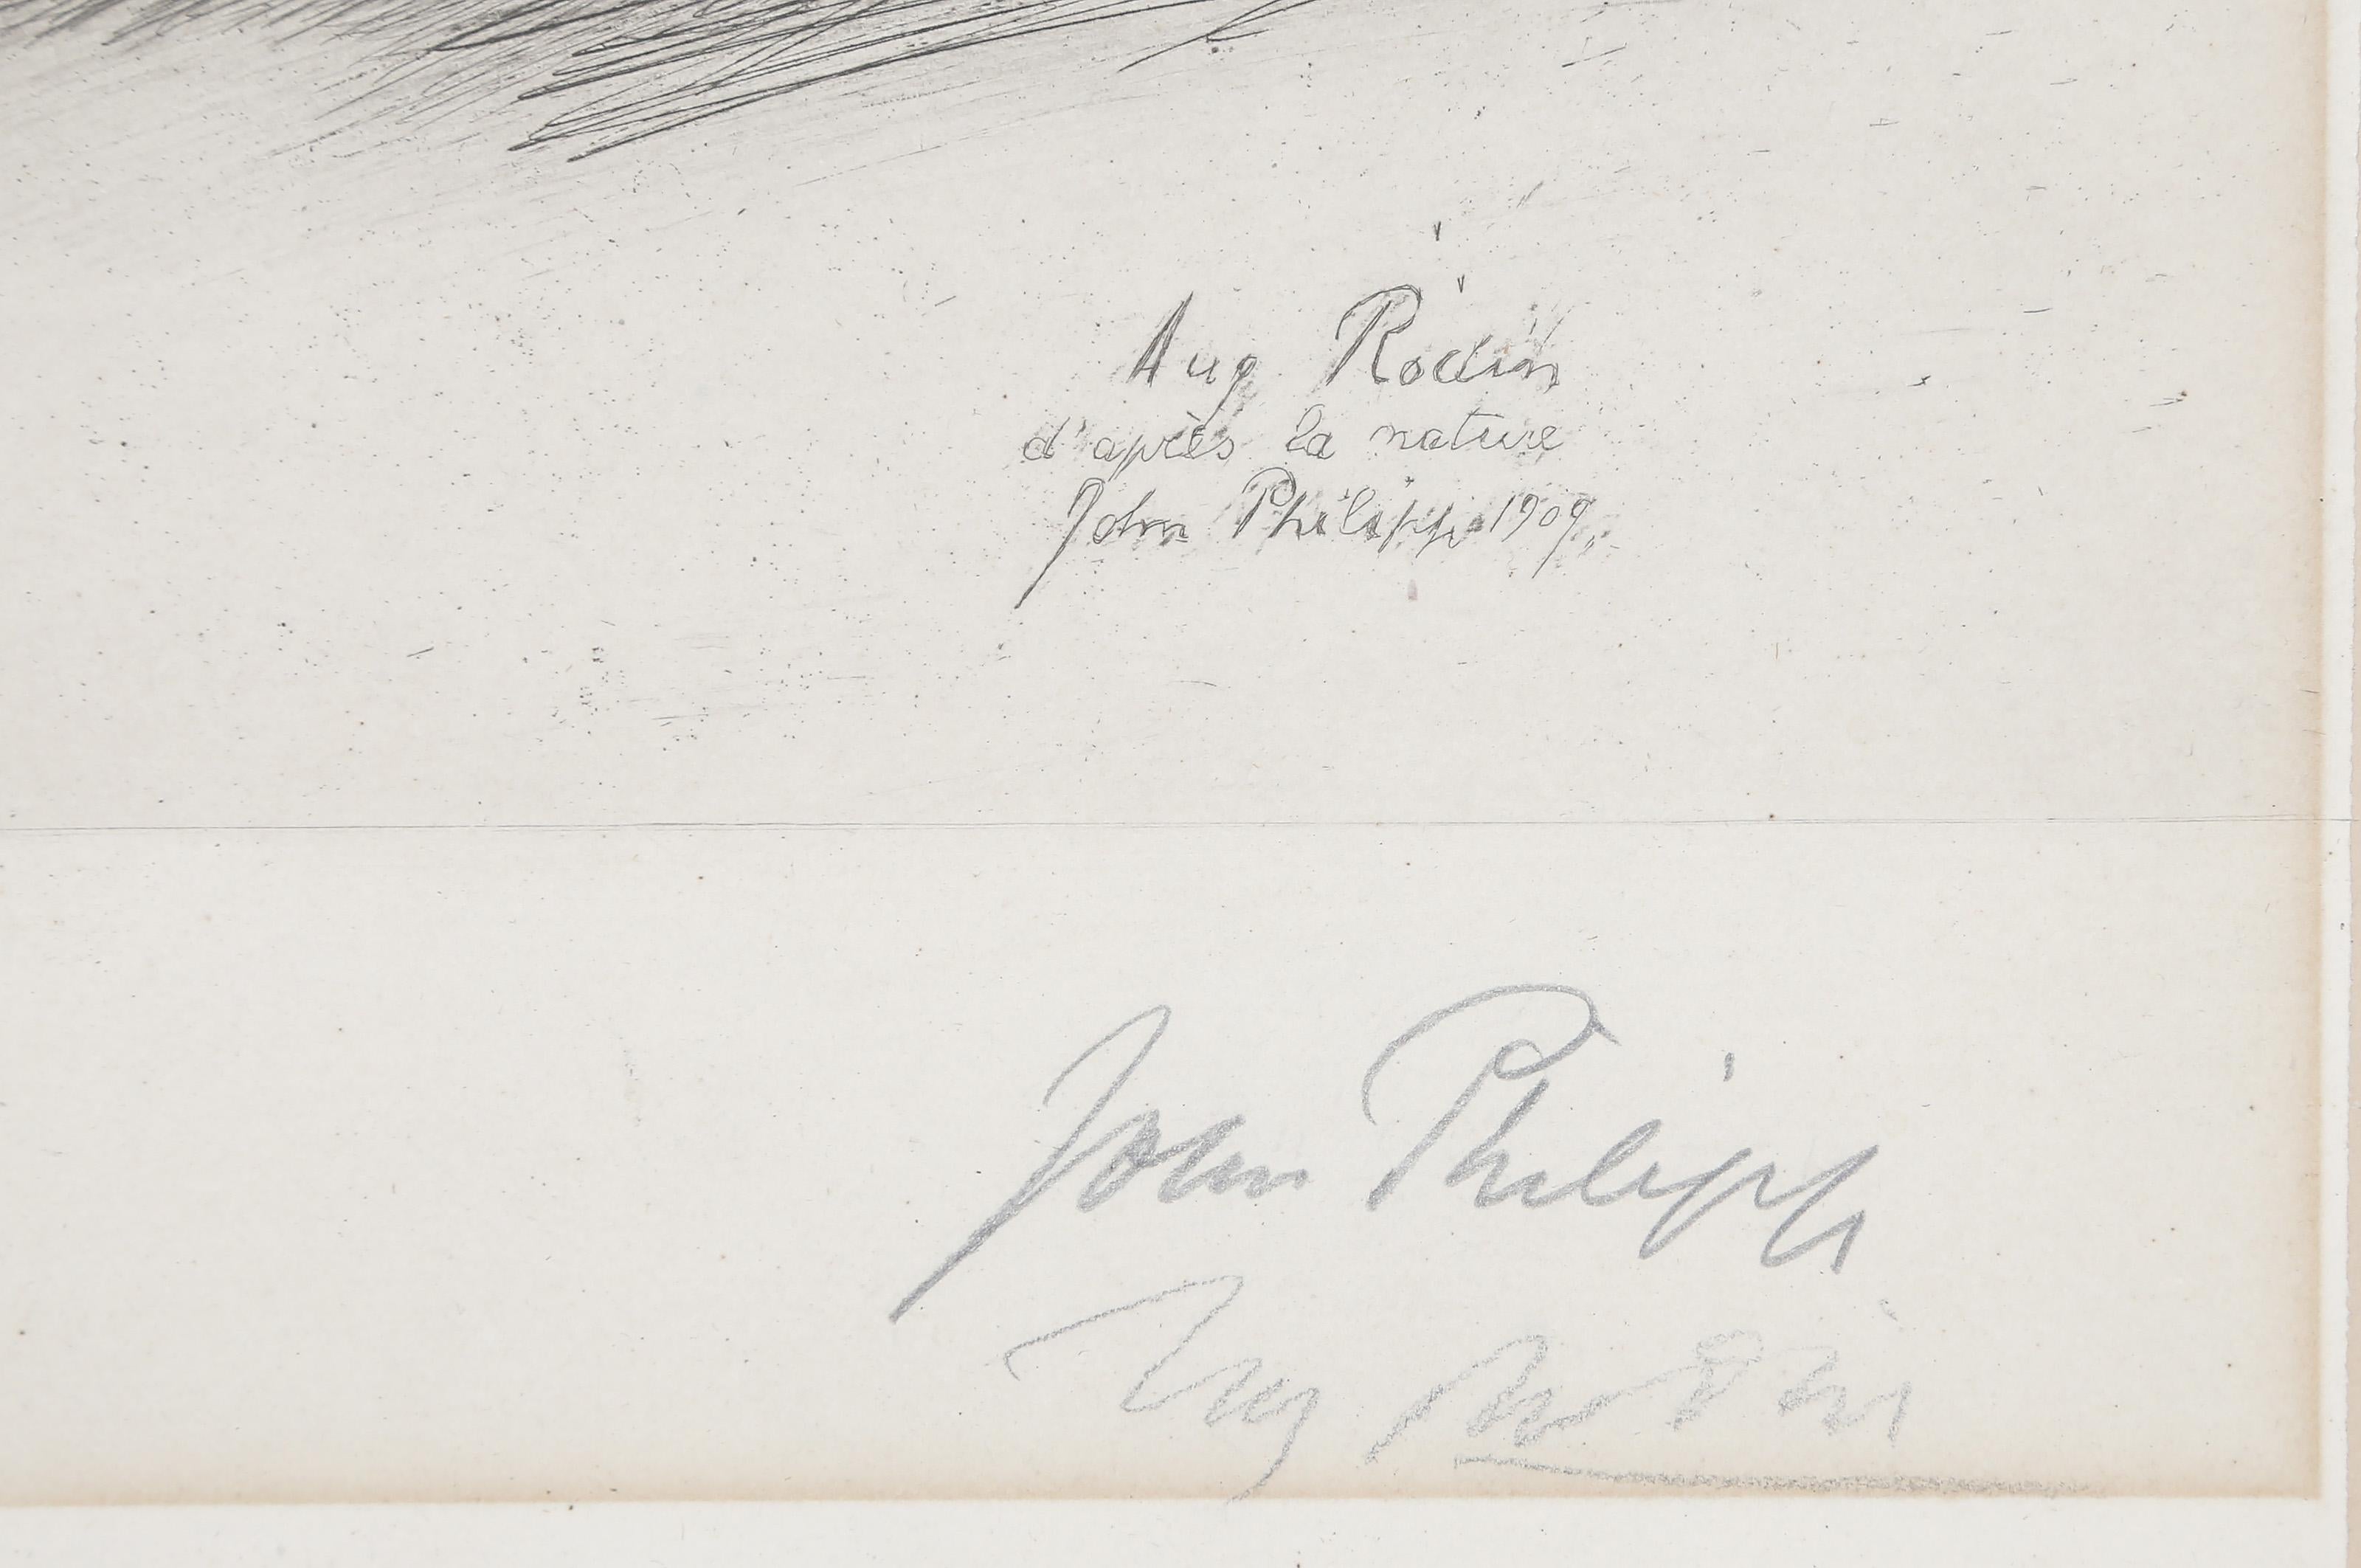 Aug Rodin
d'après la nature
John Philipp 1909
John Philipp
Aug Rodin